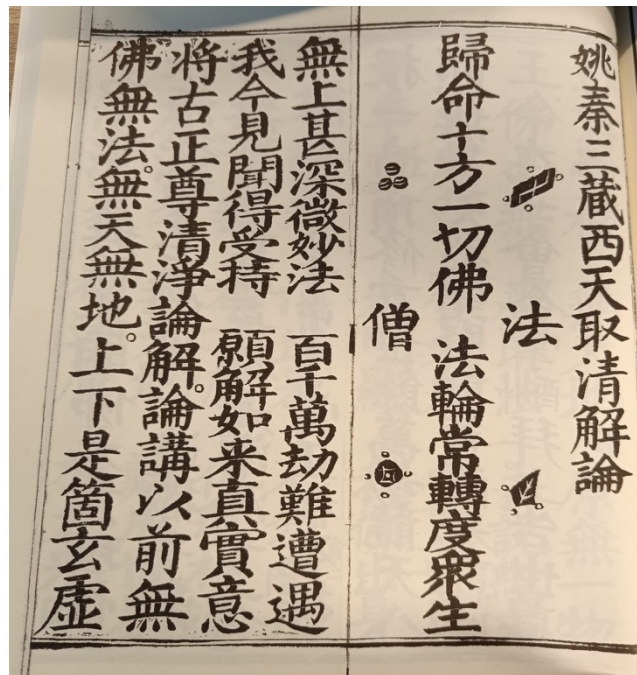 姚秦三藏西天取清解論
法
歸命十方一切佛 法輪常轉度衆生
僧
無上甚深微妙法 百千萬劫難遭遇
我今見聞得受持 願解如来真實意
将古正尊清淨論解。論講以前無
佛無法。無天無地。上下是箇玄虛